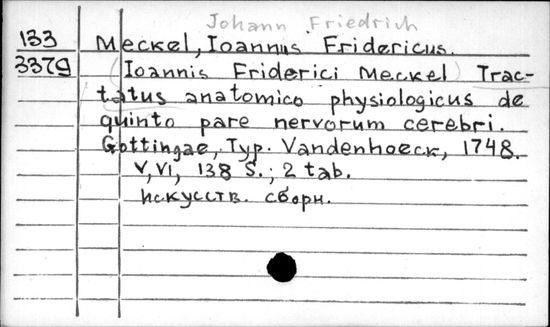 Johann Friedrich
133 Meckel, Ioannus Fridericus.
3379 (Ioannis Friderici Meckel) Trac-
tatus anatomico physiologicus de
quinto pare nervorum cerebri.
Gottingae, Typ. Vandenhoeck, 1748.
V, VI, 138 S.; 2 tab.
Искусств. сборн.